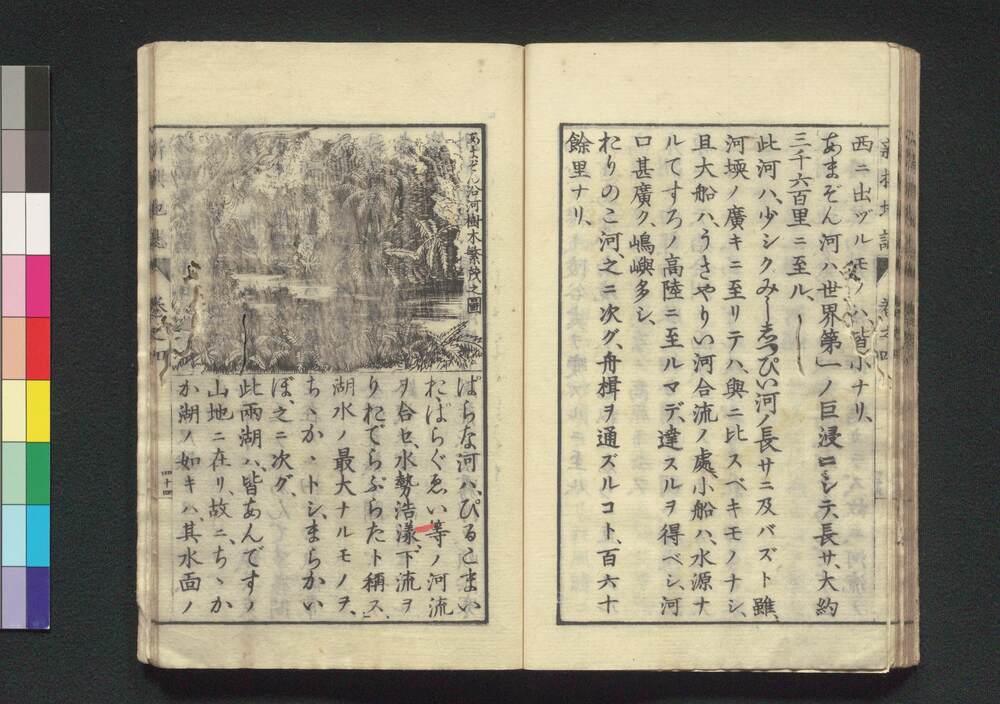 西ニ出ヅルモノハ、皆小ナリ、
あまぞん河ハ世界第一ノ巨浸ニシテ、長サ、大約
三千六百里ニ至ル、
此河ハ、少シクみししつぴい河ノ長サニ及バズト雖、
河堧ノ廣キニ至リテハ、與ニ比スベキモノナシ、
且大船ハうさやりい河合流ノ處、小船ハ、水源ナ
ルてすろノ高陸ニ至ルマデ、達スルヲ得ベシ、河
口甚廣ク、嶋嶼多シ、
おりのこ河、之ニ次グ、舟楫ヲ通ズルコト、百六十
餘里ナリ、
卷之四
あまぞん沿河樹木繁茂之圖
ぱらな河ハ、ぴるこまい
おばらぐゑい等ノ河流
ヲ合セ、水勢浩漾、下流ヲ
りおでらぷらたト稱ス、
湖水ノ最大ナルモノヲ、
ちゝかゝトシ、まらかい
ぼ、之ニ次グ、
此兩湖ハ、皆あんですノ
山地ニ在リ、故ニ、ちゝか
か湖ノ如キハ、其水面ノ
卷之四
四十四